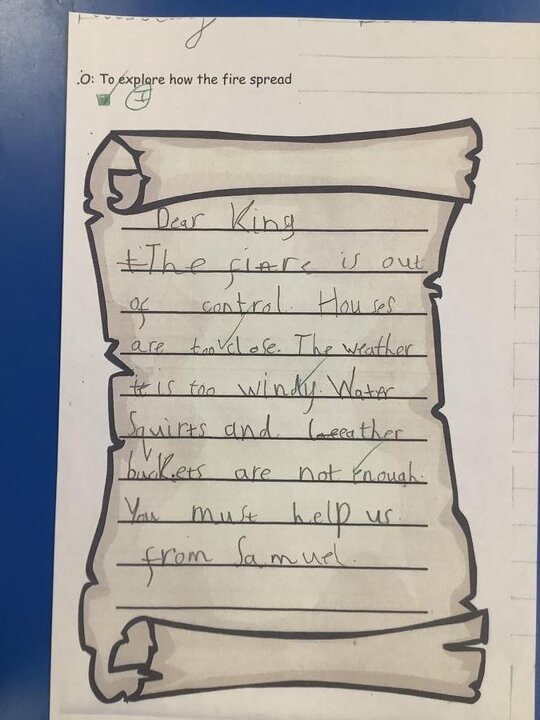 .O: To explore how the fire spread
I
Dear King
The fiare is out
of control. Houses
are too close. The weather
is too windy. Water
Squirts and leeather
buckets are not enough.
You must help us.
from Samuel.